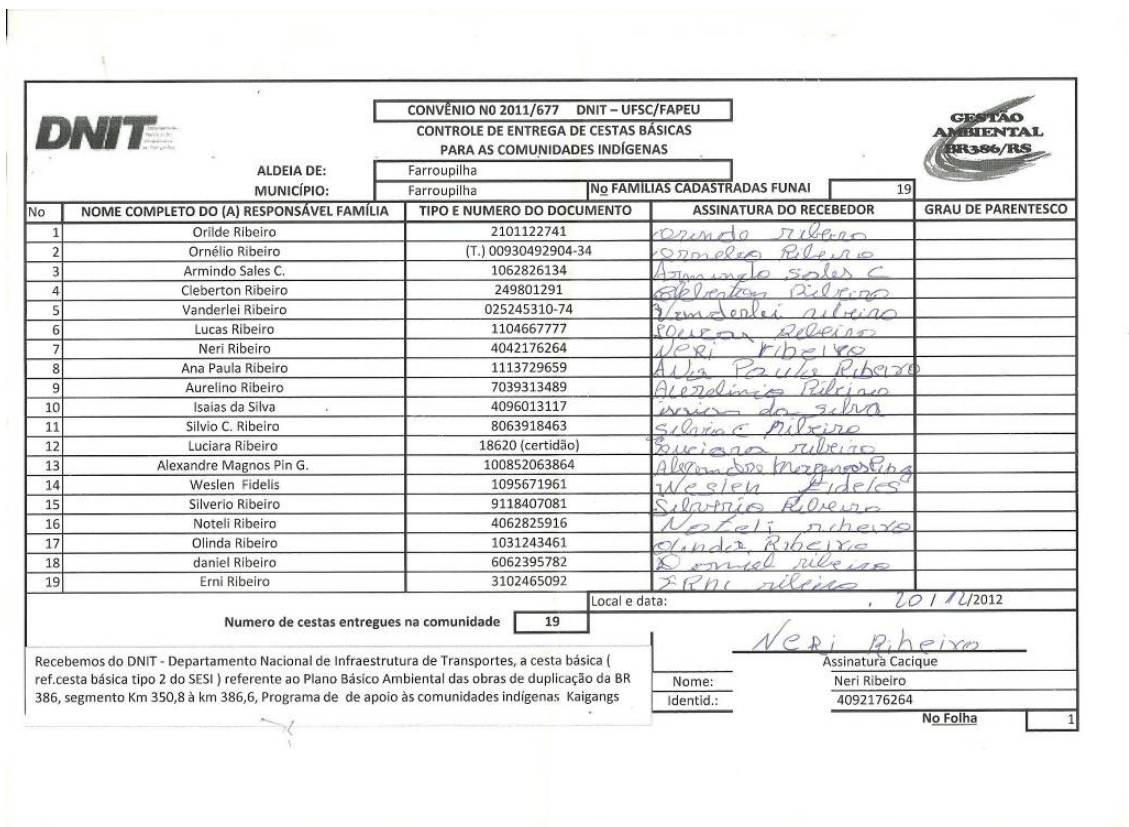 DNIT
CONVÊNIO N0 2011/677 DNIT – UFSC/FAPEU
CONTROLE DE ENTREGA DE CESTAS BÁSICAS
PARA AS COMUNIDADES INDÍGENAS
GESTÃO
AMBIENTAL
BR386/RS
ALDEIA DE: Farroupilha
MUNICÍPIO: Farroupilha No FAMÍLIAS CADASTRADAS FUNAI 19
No NOME COMPLETO DO (A) RESPONSÁVEL FAMÍLIA TIPO E NUMERO DO DOCUMENTO ASSINATURA DO RECEBEDOR GRAU DE PARENTESCO
1 Orilde Ribeiro 2101122741 ribeiro
2 Ornélio Ribeiro (T.) 00930492904-34 Ribeiro
3 Armindo Sales C. 1062826134 Armindo Sales C
4 Cleberton Ribeiro 249801291 Ribeiro
5 Vanderlei Ribeiro 025245310-74 Vanderlei ribeiro
6 Lucas Ribeiro 1104667777 Ribeiro
7 Neri Ribeiro 4042176264 Neri Ribeiro
8 Ana Paula Ribeiro 1113729659 Ana Paula Ribeiro
9 Aurelino Ribeiro 7039313489 Ribeiro
10 Isaias da Silva 4096013117 da silva
11 Silvio C. Ribeiro 8063918463 Silvio C Ribeiro
12 Luciara Ribeiro 18620 (certidão) ribeiro
13 Alexandre Magnos Pin G. 100852063864 Alexandre
14 Weslen Fidelis 1095671961 Weslen Fideles
15 Silverio Ribeiro 9118407081 Silverio Ribeiro
16 Noteli Ribeiro 4062825916 Noteli ribeiro
17 Olinda Ribeiro 1031243461 Olinda Ribeiro
18 daniel Ribeiro 6062395782 Daniel ribeiro
19 Erni Ribeiro 3102465092 ERNI ribeiro
Local e data: 20 / 12/2012
Numero de cestas entregues na comunidade 19
Neri Ribeiro
Assinatura Cacique
Recebemos do DNIT - Departamento Nacional de Infraestrutura de Transportes, a cesta básica (
ref.cesta básica tipo 2 do SESI ) referente ao Plano Básico Ambiental das obras de duplicação da BR
386, segmento Km 350,8 à km 386,6, Programa de de apoio às comunidades indígenas Kaigangs
Nome: Neri Ribeiro
Identid.: 4092176264
No Folha 1